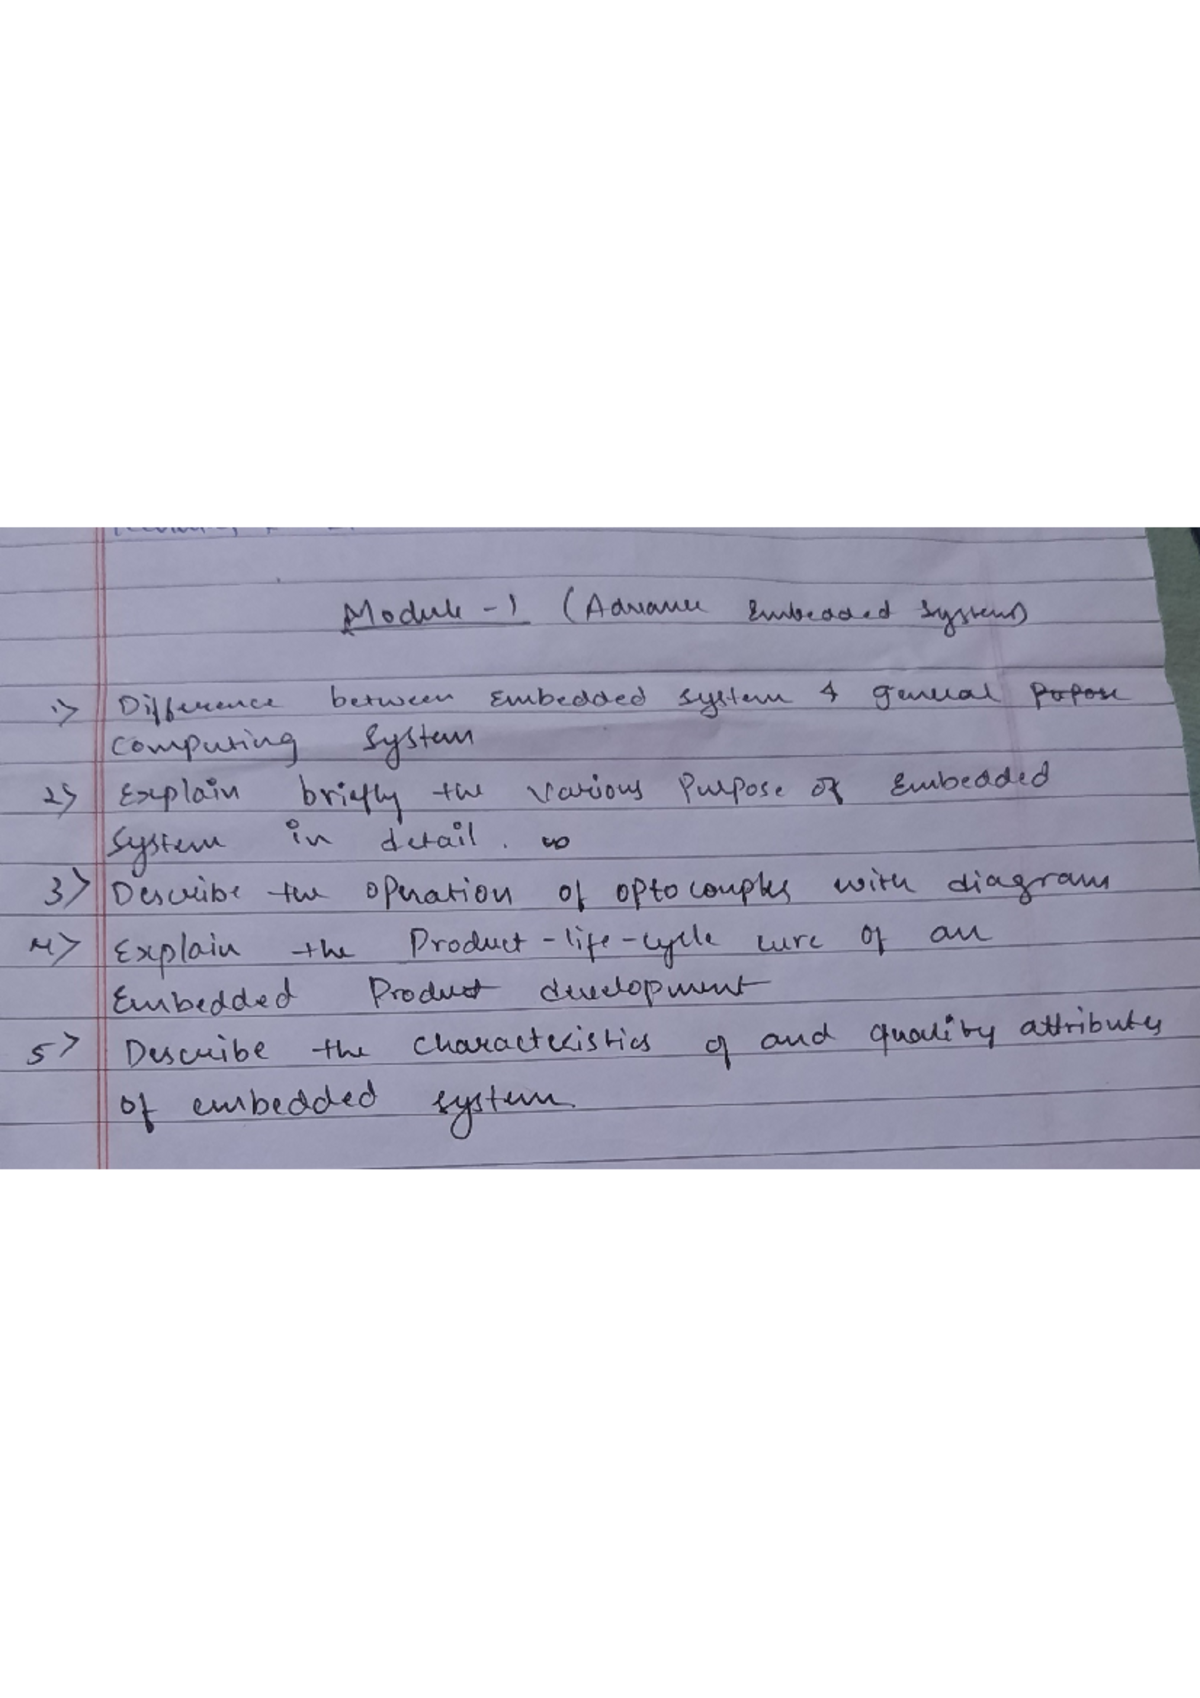 Module - 1 (Advance Embedded System)
1> Difference between Embedded system & general Popose
computing system
2> Explain briefly the various Purpose of Embedded
system in detail.
3> Describe the operation of optocouples with diagram
4> Explain the Product-life-cycle cure of an
Embedded Product development
5> Describe the characteristics of and quality attributes
of embedded system.